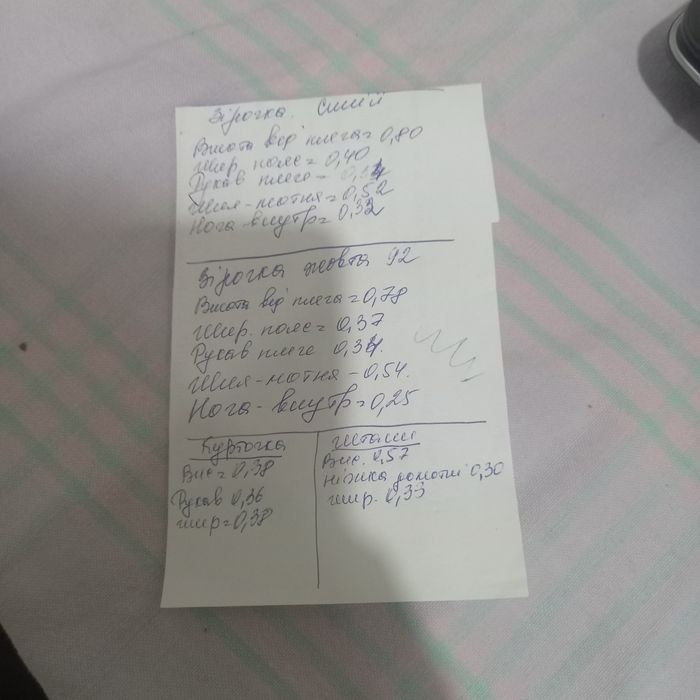 Зірочка. Синій
Висота від плеча = 0,80
Шир. пояс = 0,40
Рукав плече =
Шия-мотня = 0,52
Нога-внутр = 0,32
Зірочка жовта 92
Висота від плеча = 0,78
Шир. пояс = 0,37
Рукав плече 0,34.
Шия-мотня - 0,54.
Нога-внутр = 0,25
Курточка
Вис = 0,38
Рукав 0,36
шир = 0,38
Штани
Вис. 0,57
ніжка до мотні 0,30
шир. 0,33